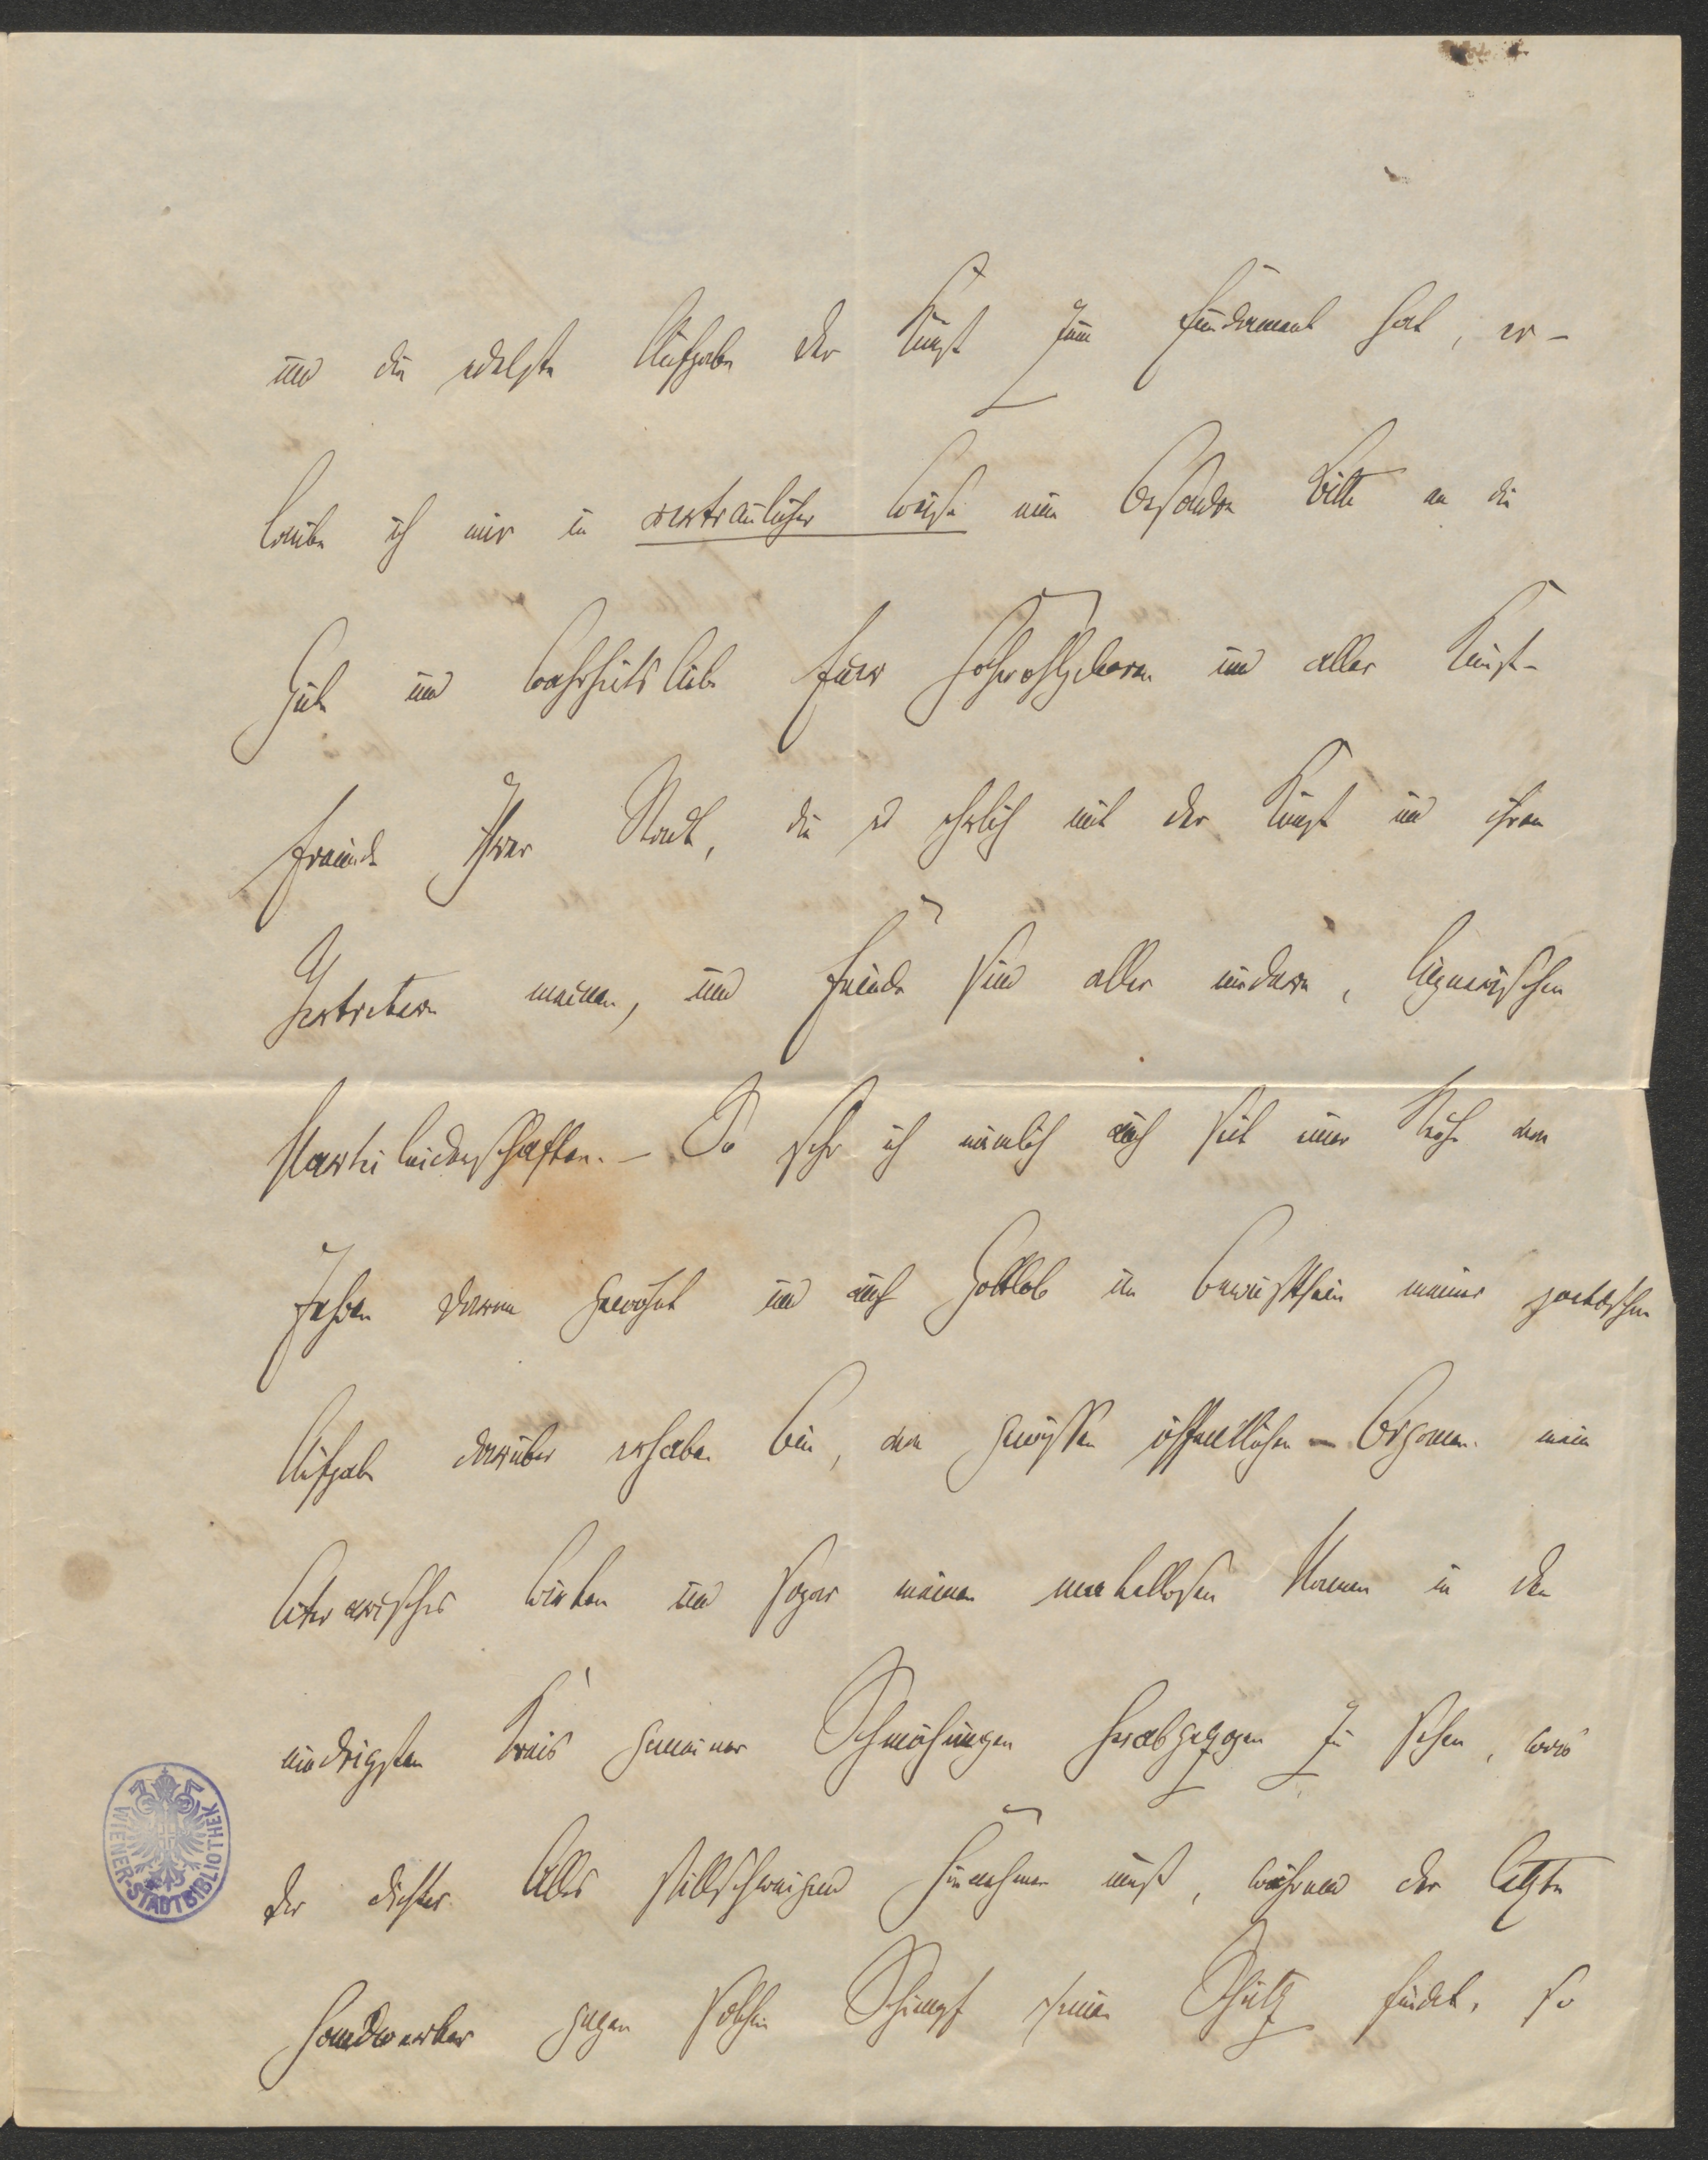 und die edelste Aufgabe der Kunst zum Fundament hat, er-
laube ich mir in vertraulicher Weise eine besondere Bitte an die
Güte und Wahrheitsliebe Euer Hochwohlgeboren und aller Kunst-
freunde Ihrer Stadt, die es ehrlich mit der Kunst und ihren
Vertretern meinen, und Feinde sind aller niedern, lügnerischen
Parteileidenschaften. – So sehr ich nämlich auch seit einer Reihe von
Jahren daran gewöhnt und auch Gottlob im Bewußtsein meiner poetischen
Aufgabe darüber erhaben bin, von gewissen öffentlichen – Organen mein
literarisches Wirken und sogar meinen makellosen Namen in den
niedrigsten Kreis gemeiner Schmähungen herabgezogen zu sehen, was
der Dichter Alles stillschweigend hinnehmen muß, während der letzte
Handwerker gegen solchen Schimpf seinen Schutz findet, so
WIENER-STADTBIBLIOTHEK